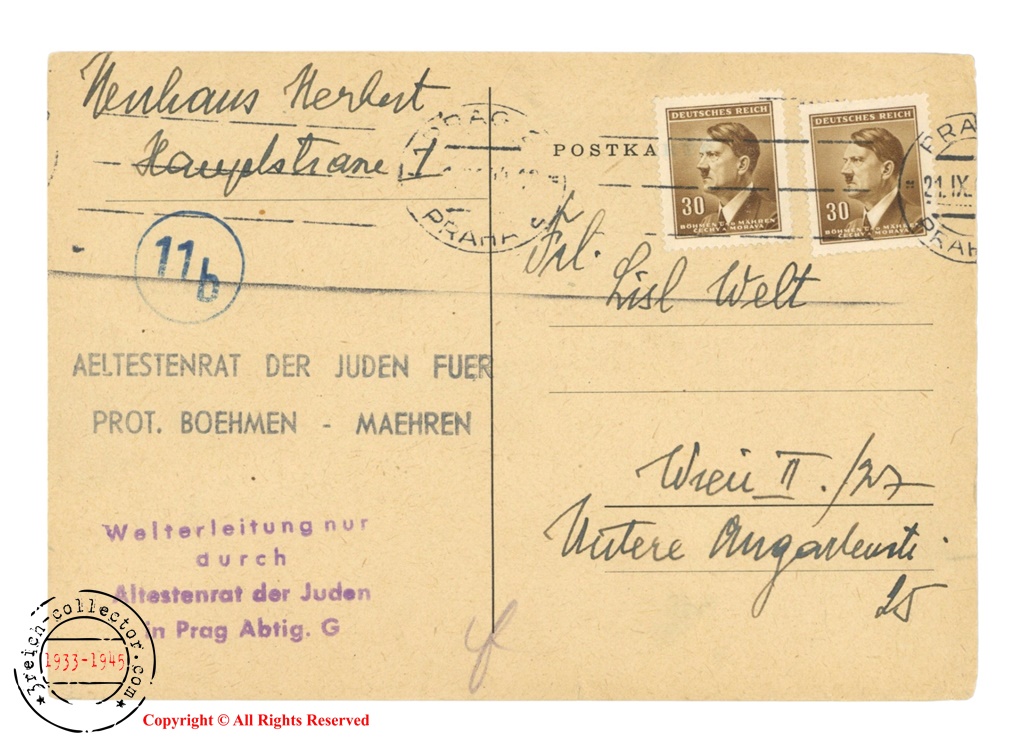 Neuhaus Herbert
Hauptstrasse 1
PRAG
PRAHA
11b
AELTESTENRAT DER JUDEN FUER
PROT. BOEHMEN - MAEHREN
Weiterleitung nur
durch
Ältestenrat der Juden
in Prag Abtlg. G
POSTKA
DEUTSCHES REICH
30
BÖHMEN U. MÄHREN
ČECHY A MORAVA
DEUTSCHES REICH
30
BÖHMEN U. MÄHREN
ČECHY A MORAVA
PRA
21.IX.
PRAH
Frl.
Lisl Welt
Wien II./27
Untere Augartenstr.
25
3reich-collector.com
1933-1945
Copyright © All Rights Reserved